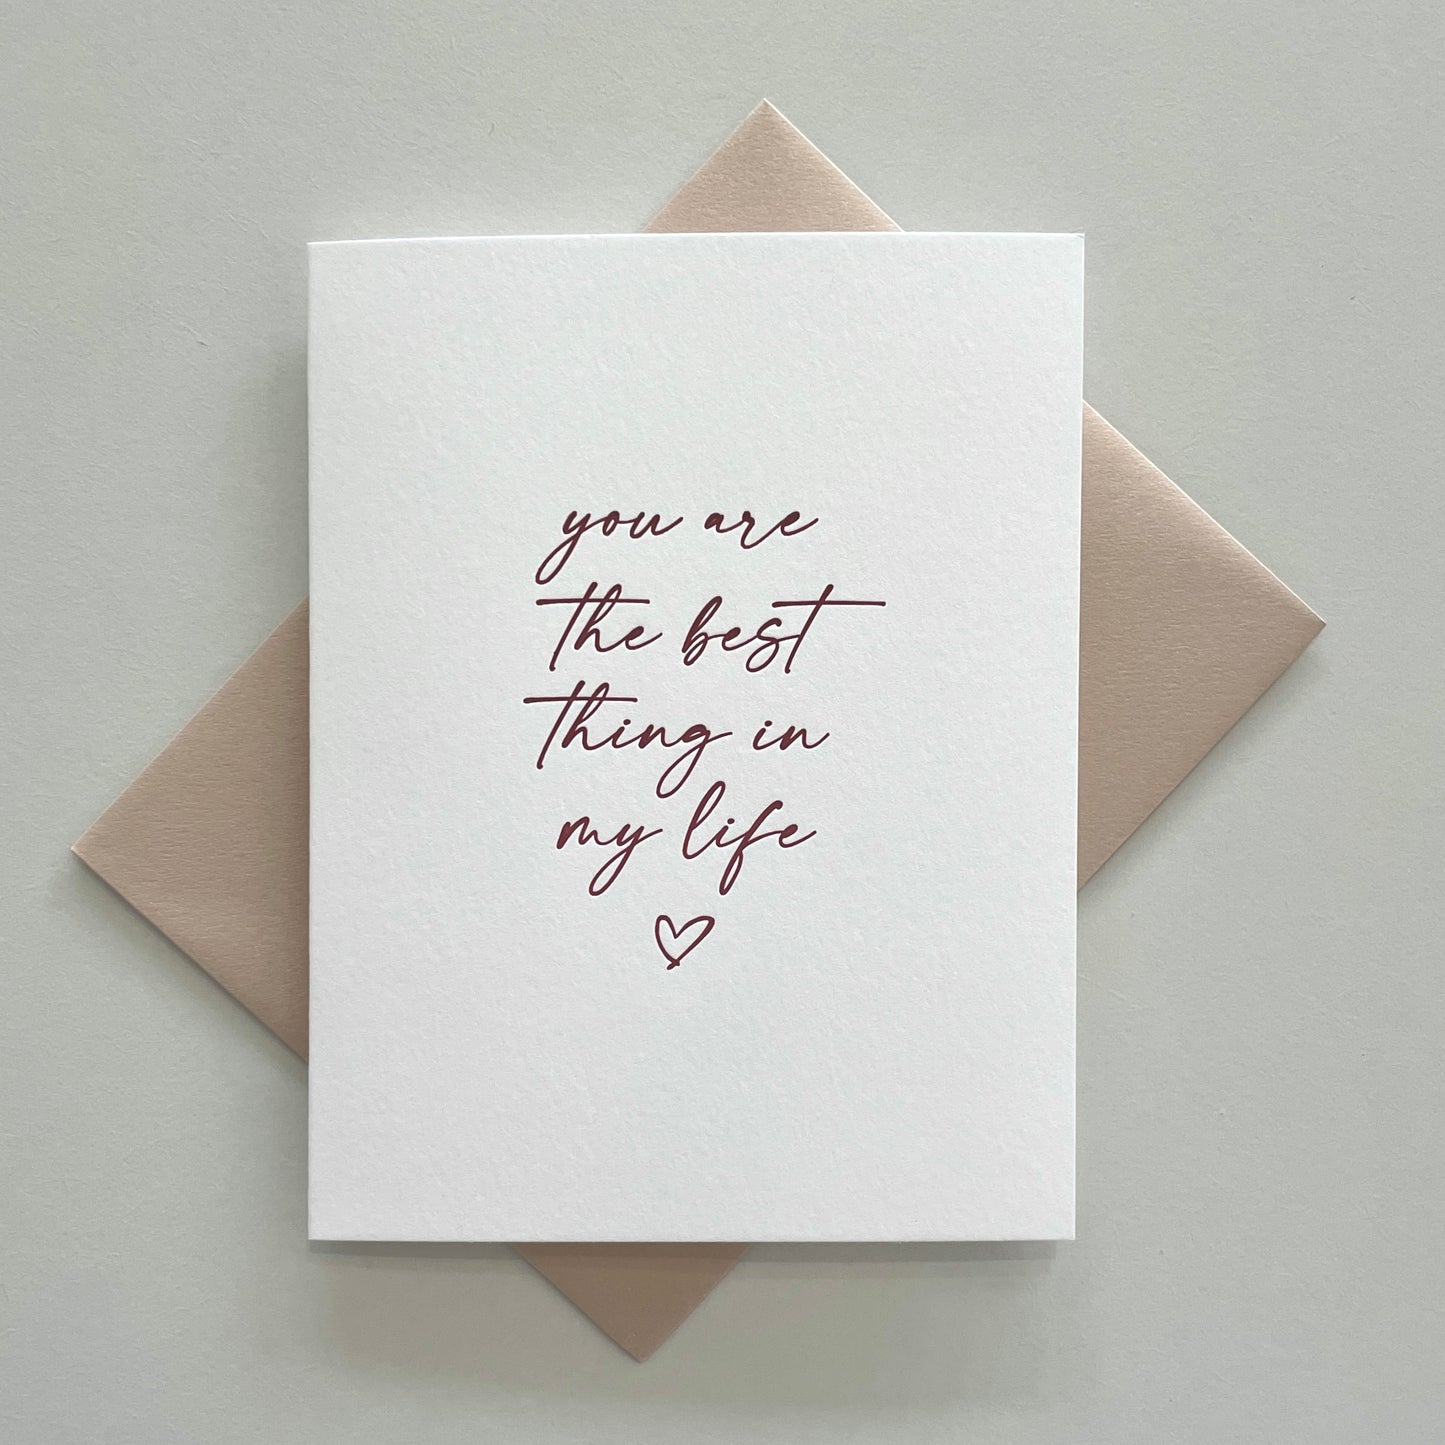 you are
the best
thing in
my life